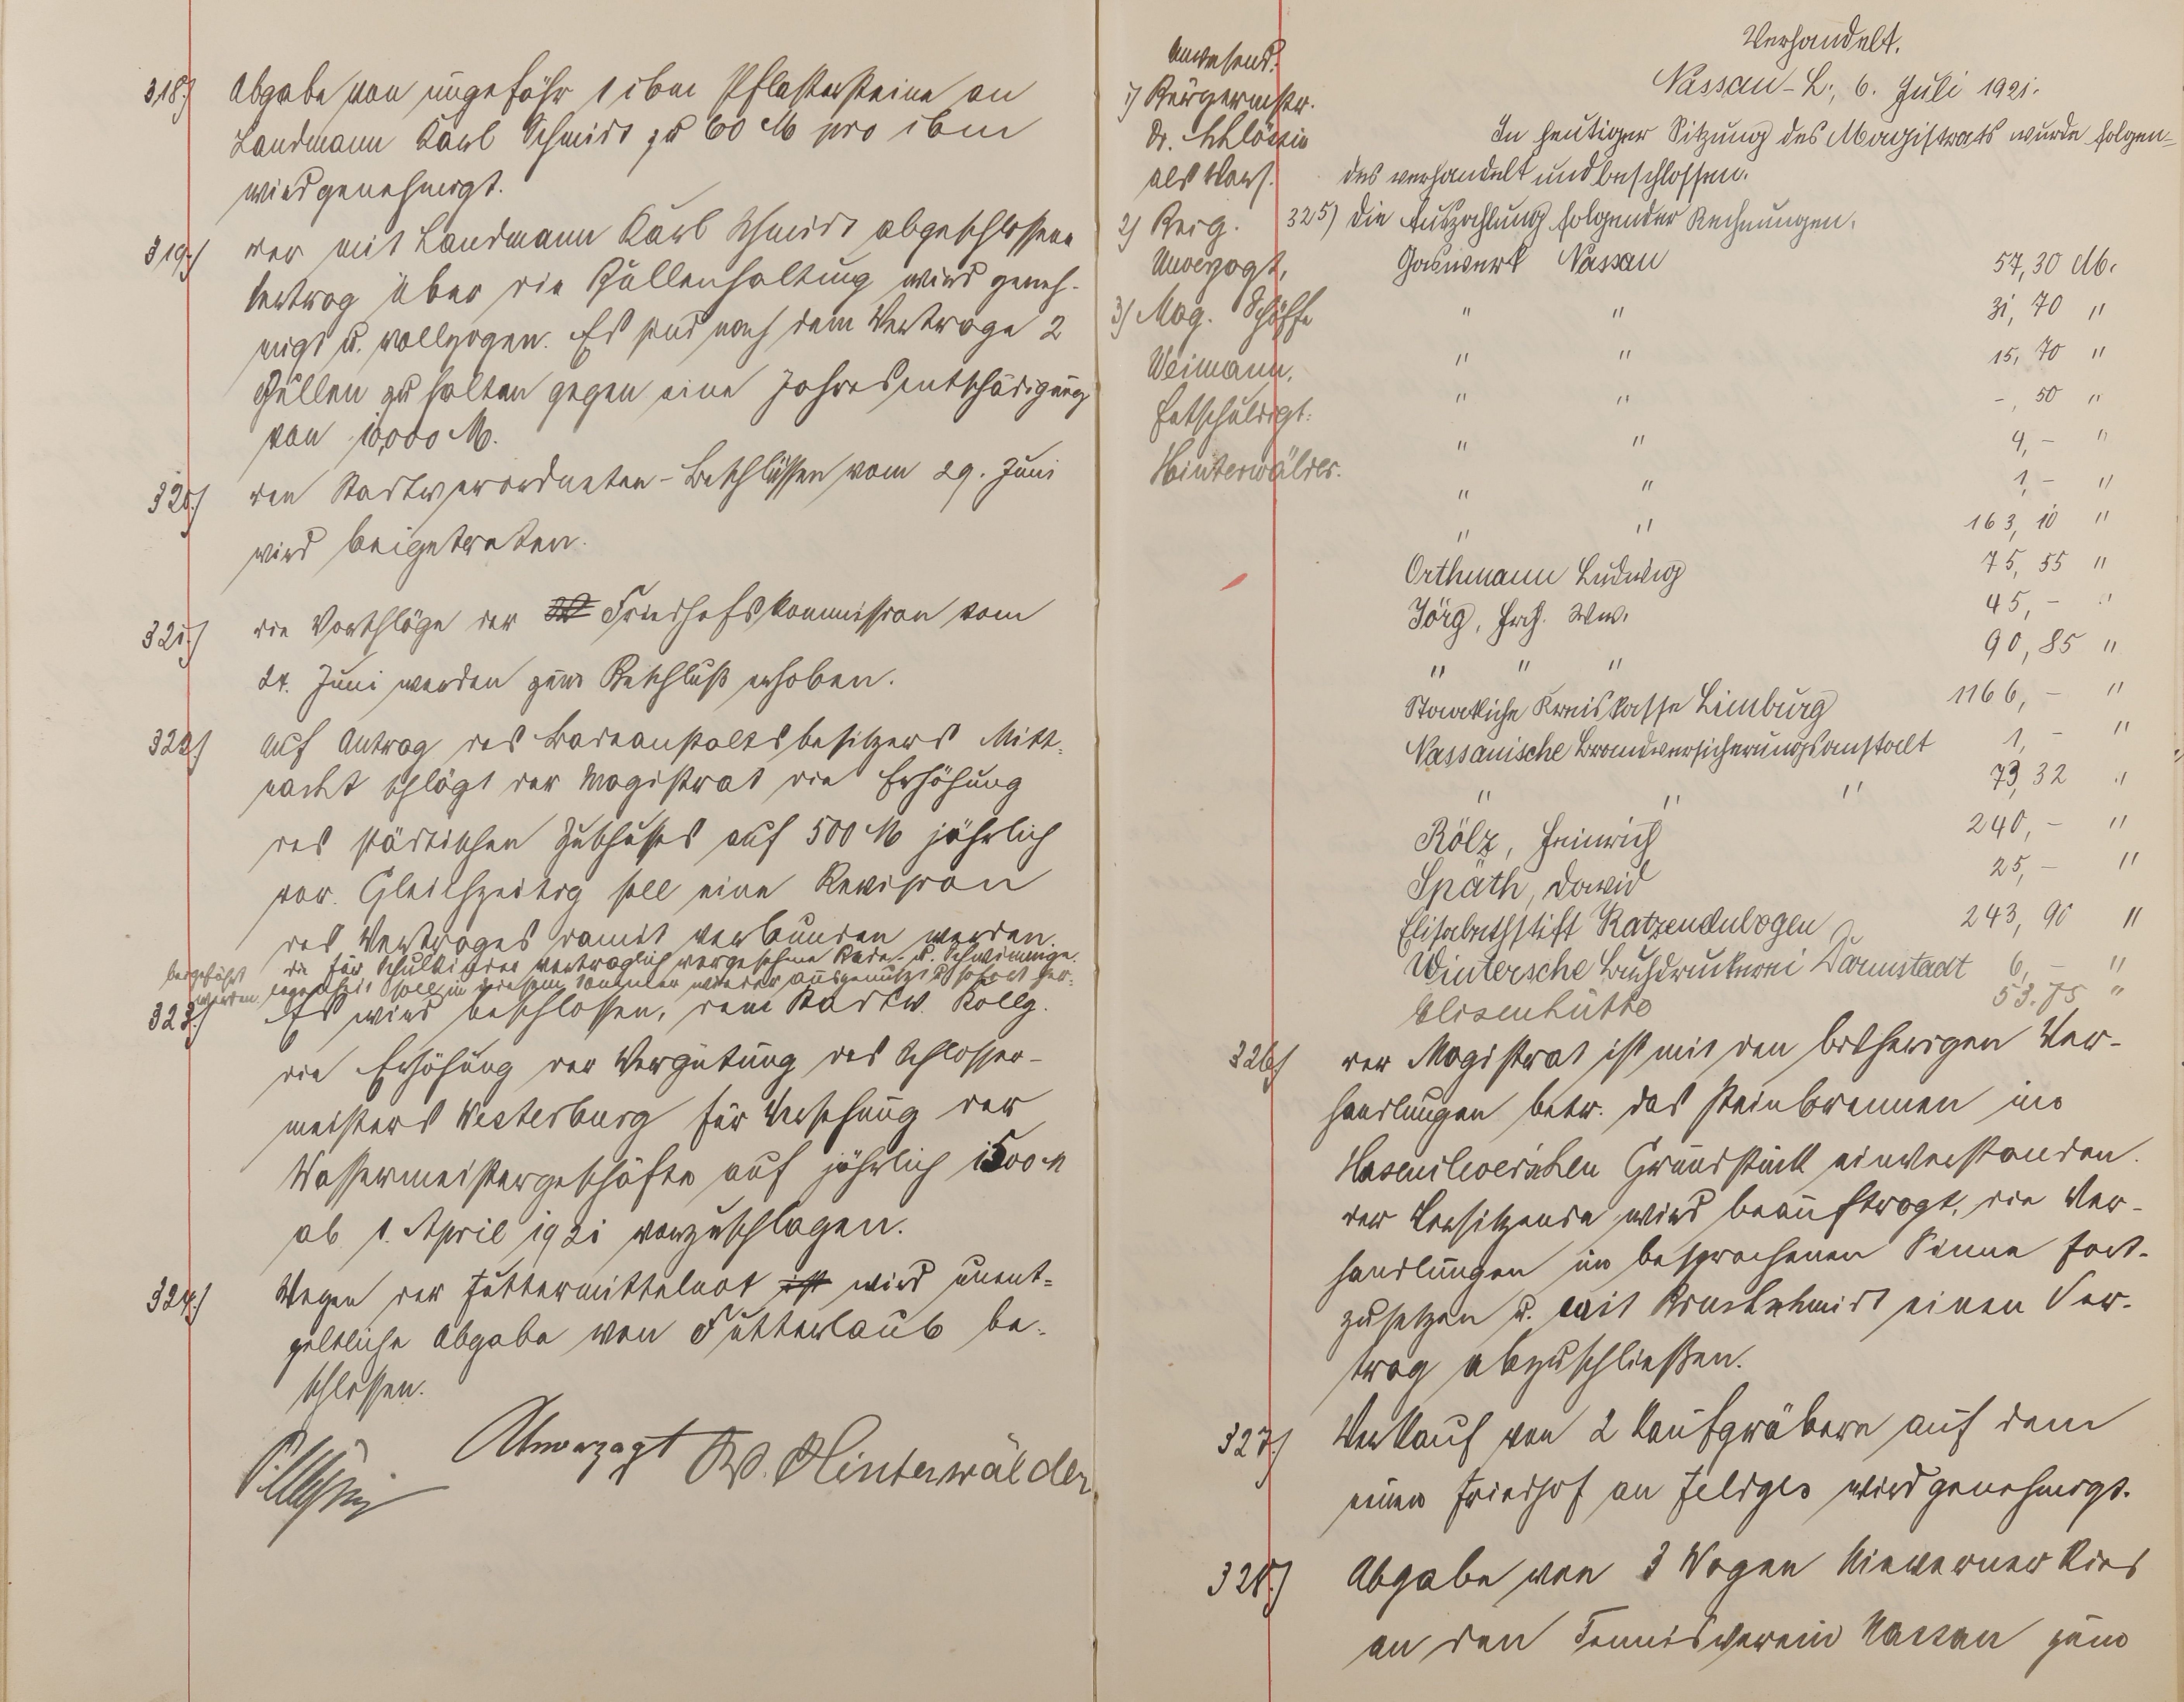 318.) Abgabe von ungefähr 1 cbm Pflastersteine an
Landmann Karl Schmidt zu 60 M pro cbm
wird genehmigt.
319.) Der mit Landmann Karl Schmidt abgeschlossene
Vertrag über die Bullenhaltung wird geneh-
migt u. vollzogen. Es sind nach dem Vertrage 2
Bullen zu halten gegen eine Jahresentschädigung
von 10,000 M.
320.) Den Stadtverordneten-Beschlüssen vom 29. Juni
wird beigetreten.
321.) Die Vorschläge der Friedhofskommission vom
24. Juni werden zum Beschluß erhoben.
322.) Auf Antrag des Badeanstaltsbesitzers Mitt-
nacht schlägt der Magistrat die Erhöhung
des städtischen Zuschusses auf 500 M jährlich
vor. Gleichzeitig soll eine Revision
des Vertrages damit verbunden werden.
Die für Schulkinder vertraglich vorgesehene Bade- u. Schwimmge-
legenheit soll in diesem Sommer wieder ausgenutzt u. sofort her-
beigeführt
werden.
323.) Es wird beschlossen, dem Stadtv. Kolleg.
die Erhöhung der Vergütung des Schlosser-
meisters Westerburg für Versehung der
Wassermeistergeschäfte auf jährlich 1500 M
ab 1. April 1921 vorzuschlagen.
324.) Wegen der Futtermittelnot ist wird unent-
geltliche Abgabe von Futterlaub be-
schlossen.
Unverzagt W. Hinterwälder
Anwesend:
1) Bürgermstr.
Dr.
als Vors.
2) Beig.
Unverzagt,
3) Mag. Schöffe
Weimann.
Entschuldigt:
Hinterwälder.
Verhandelt.
Nassau-L., 6. Juli 1921.
In heutiger Sitzung des Magistrats wurde folgen-
des verhandelt und beschlossen.
325) Die Auszahlung folgender Rechnungen.
Gaswerk Nassau 57,30 M.
" " 31,70 "
" " 15,70 "
" " -,50 "
" " 4,- "
" " 1,- "
" " 163,10 "
Orthmann Ludwig 75,55 "
Jörg, Frch. Ww. 45,- "
" " " 90,85 "
Staatliche Kreiskasse Limburg 1166,- "
Nassauische Brandversicherungsanstalt 1,- "
" " " 73,32 "
Rölz, Heinrich 240,- "
Späth, David 25,- "
Elisabethstift Katzenelnbogen 243,90 "
Wintersche Buchdruckerei Darmstadt 6,- "
Elisenhütte 53.75 "
326.) Der Magistrat ist mit den bisherigen Ver-
handlungen betr. das Steinbrennen im
Grundstück einverstanden.
Der Vorsitzende wird beauftragt, die Ver-
handlungen im besprochenen Sinne fort-
zusetzen u. mit einen Ver-
trag abzuschließen.
327.) Verkauf von 2 Kaufgräbern auf dem
neuen Friedhof an Feldges wird genehmigt.
328.) Abgabe von 3 Wagen Nieverner Kies
an den Tennisverein Nassau zum